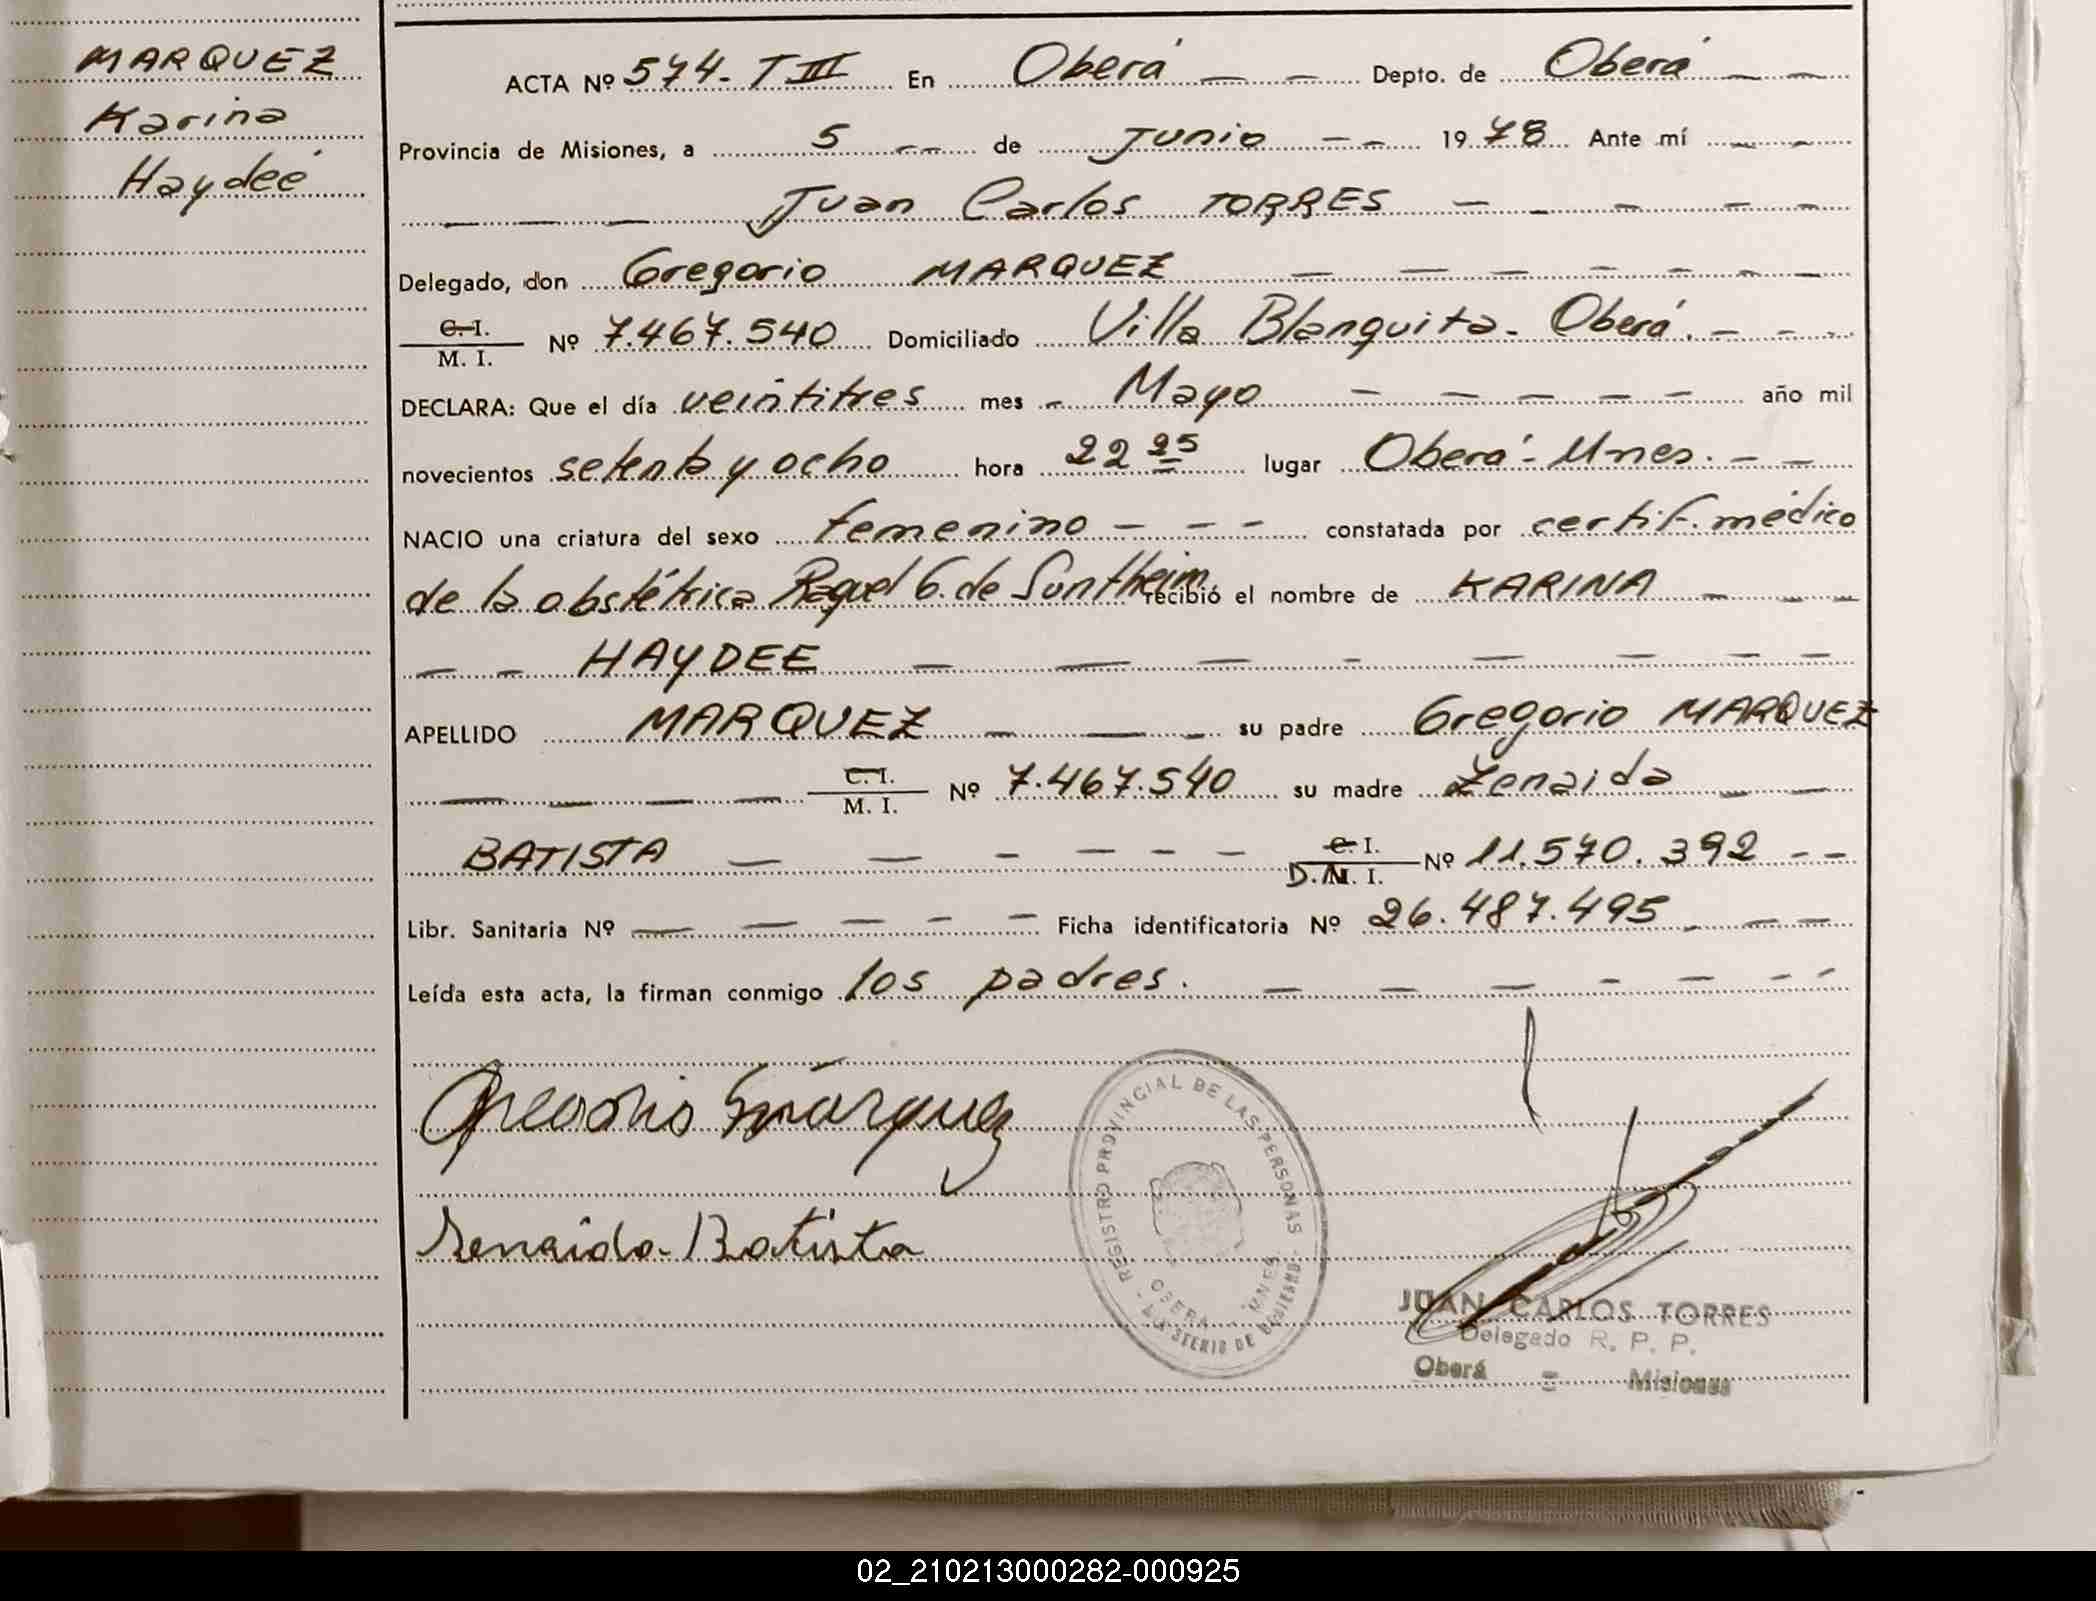 MARQUEZ
Karina
Haydeé
ACTA Nº 574. T III En Oberá Depto. de Oberá
Provincia de Misiones, a 5 de Junio 1978 Ante mí
Juan Carlos TORRES
Delegado, don Gregorio MARQUEZ
C. I.
M. I. Nº 7.467.540 Domiciliado Villa Blanquita - Oberá.
DECLARA: Que el día veintitres mes Mayo año mil
novecientos setenta y ocho hora 22 25 lugar Oberá - Mnes.
NACIO una criatura del sexo femenino constatada por certif. médico
de la obstétrica Raquel G. de Suntheim recibió el nombre de KARINA
HAYDEE
APELLIDO MARQUEZ su padre Gregorio MARQUEZ
C. I.
M. I. Nº 7.467.540 su madre Zenaida
BATISTA C. I.
D.N. I. Nº 11.570.392
Libr. Sanitaria Nº Ficha identificatoria Nº 26.487.495
Leída esta acta, la firman conmigo los padres.
Gregorio Márquez
Senaida Batista
REGISTRO PROVINCIAL DE LAS PERSONAS
OBERA - MNES.
MINISTERIO DE GOBIERNO
JUAN CARLOS TORRES
Delegado R. P. P.
Oberá = Misiones
02_210213000282-000925